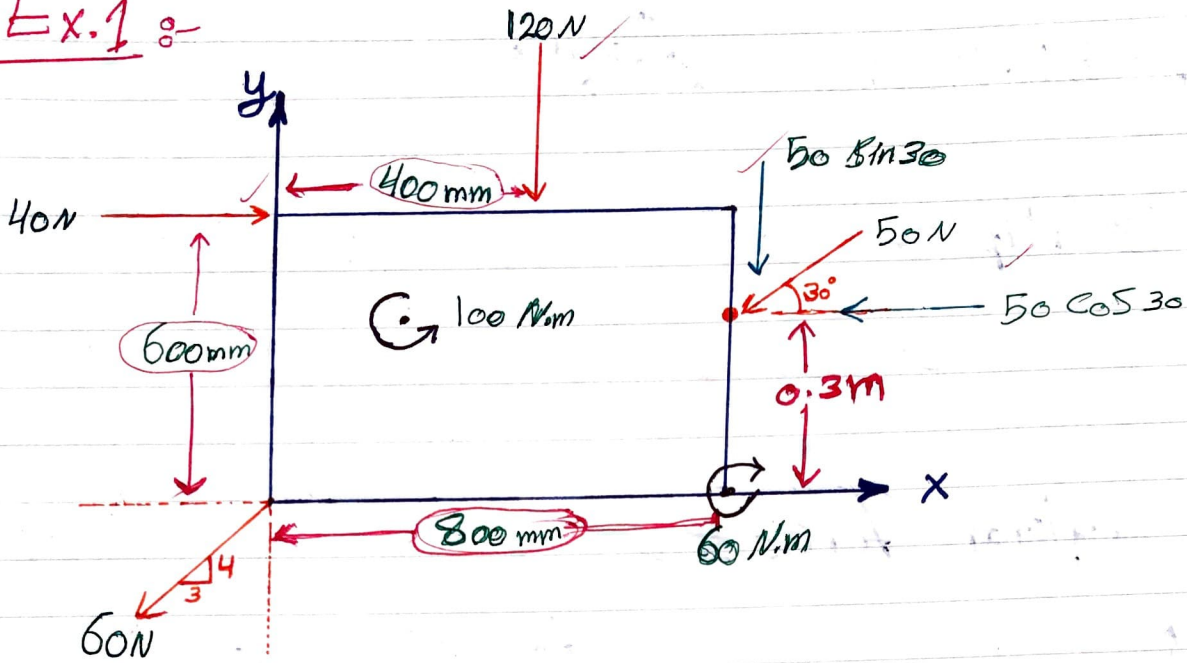 Ex.1 :-
120N
y
400mm
50 Sin30
40N
50N
30°
50 Cos 30
100 N.m
600mm
0.3m
x
800 mm
60 N.m
4
3
60N